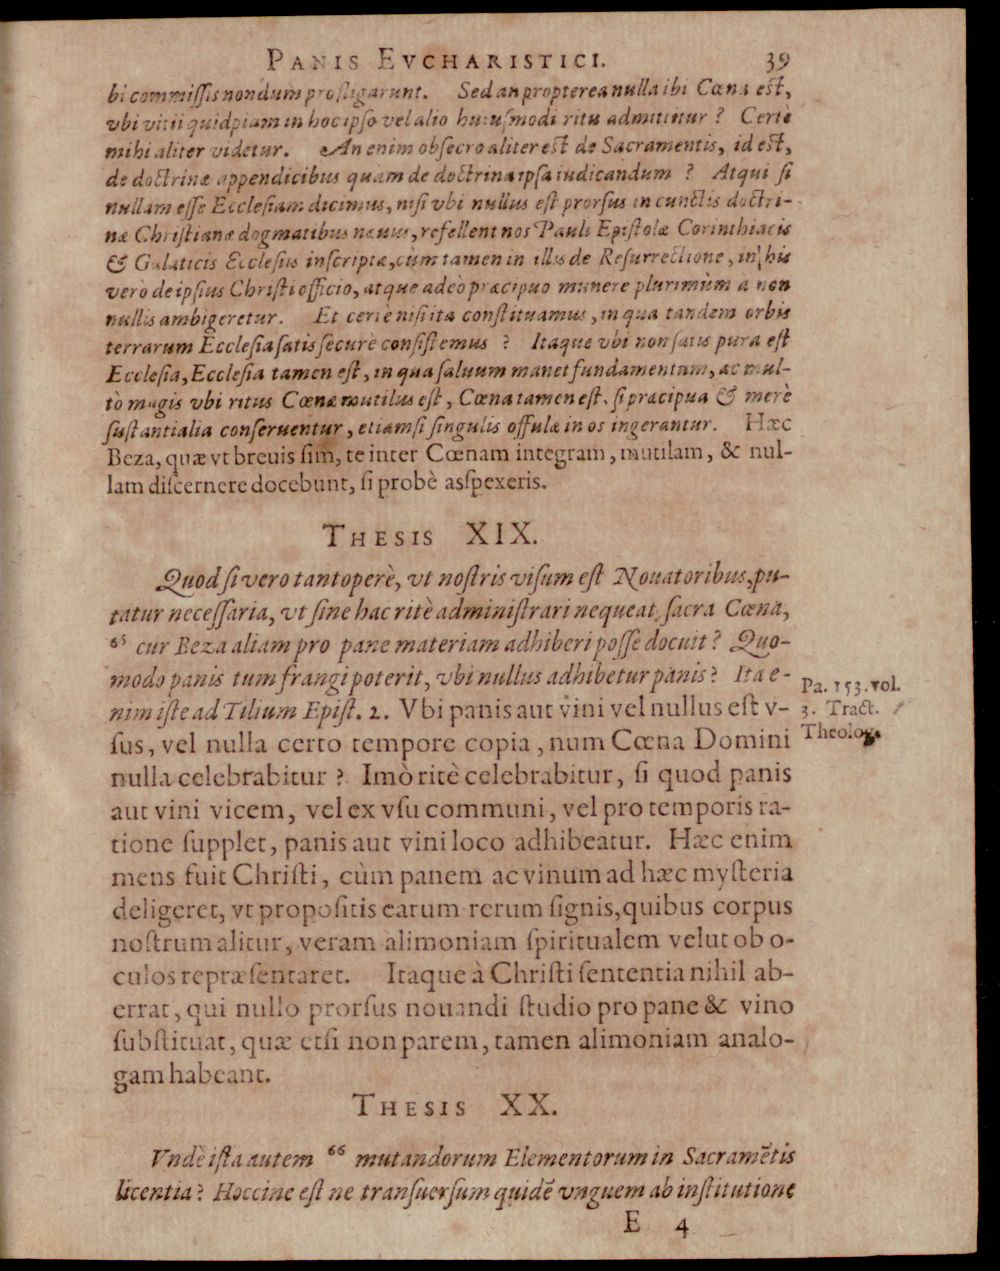 PANIS EVCHARISTICI. 39
bi commissis nondum profligarunt. Sed an propterea nulla ibi Cœna est,
vbi vitii quidpiam in hoc ipso vel alio huiusmodi ritu admittitur ? Certè
mihi aliter videtur. An enim obsecro aliter est de Sacramentis, id est,
de doctrinæ appendicibus quam de doctrina ipsa iudicandum ? Atqui si
nullam esse Ecclesiam dicimus, nisi vbi nullus est prorsus in cunctis doctri-
næ Christianæ dogmatibus næuus, refellent nos Pauli Epistolæ Corinthiacis
& Galaticis Ecclesiis inscriptæ, cùm tamen in illis de Resurrectione, in his
verò de ipsius Christi officio, atque adeò præcipuo munere plurimùm a non
nullis ambigeretur. Et certè nisi ita constituamus, in qua tandem orbis
terrarum Ecclesia satis securè consistemus ? Itaque vbi non satis pura est
Ecclesia, Ecclesia tamen est, in qua saluum manet fundamentum, ac mul-
tò magis vbi ritus Cœnæ mutilus est, Cœna tamen est, si præcipua & merè
substantialia conseruentur, etiamsi singulis offulæ in os ingerantur. Hæc
Beza, quæ vt breuis sim, te inter Cœnam integram, mutilam, & nul-
lam discernere docebunt, si probè asspexeris.
THESIS XIX.
Quod si vero tantoperè, vt nostris visum est Nouatoribus, pu-
tatur necessaria, vt sine hac ritè administrari nequeat sacra Cœna,
65 cur Beza aliam pro pane materiam adhiberi posse docuit ? Quo-
modo panis tum frangi poterit, vbi nullus adhibetur panis ? Ita e-
nim iste ad Tilium Epist. 2. Vbi panis aut vini vel nullus est v-
sus, vel nulla certo tempore copia, num Cœna Domini
nulla celebrabitur ? Imò ritè celebrabitur, si quod panis
aut vini vicem, vel ex vsu communi, vel pro temporis ra-
tione supplet, panis aut vini loco adhibeatur. Hæc enim
mens fuit Christi, cùm panem ac vinum ad hæc mysteria
deligeret, vt propositis earum rerum signis, quibus corpus
nostrum alitur, veram alimoniam spiritualem velut ob o-
culos repræsentaret. Itaque à Christi sententia nihil ab-
errat, qui nullo prorsus nouandi studio pro pane & vino
substituat, quæ etsi non parem, tamen alimoniam analo-
gam habeant.
Pa. 153. vol.
3. Tract.
Theolog.
THESIS XX.
Vndè ista autem 66 mutandorum Elementorum in Sacramẽtis
licentia ? Hoccine est ne transuersum quidẽ vnguem ab institutione
E 4